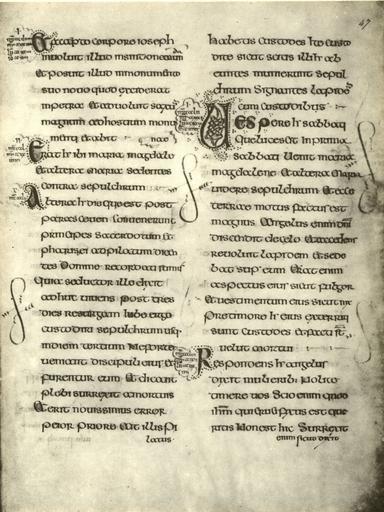 Et accepto corpore ioseph
inuoluit illud insindone
et posuit illud inmonumento
suo nouo quod exciderat
inpetra et aduoluit saxum
magnum adhostium monu
menti et abiit
Erat ħ ibi maria magdale
et altera maria sedentes
contra sepulchrum
Altera ħ die que est post
parasceuen conuenerunt
principes sacerdotum et
pharisei adpilatum dicen
tes Domine recordati sumus
quia seductor ille dixit
adhuc uiuens post tres
dies resurgam Iube ergo
custodiri sepulchrum usq;
indiem tertium Ne forte
ueniant discipuli eius et
furentur eum Et dicant
plebi surrexit amortuis
Et erit nouissimus error
peior priore Ait illis pi
latus
47
habetis custodes Ite custo
dite sicut scitis illi ħ ab
euntes munierunt sepul
chrum Signantes lapidem
cum custodibus
Uespere ħ sabbati
que lucescit in prima
sabbati Uenit maria
magdalene et altera maria
uidere sepulchrum Et ecce
terrae motus factus est
magnus Angelus enim dni
discendit decelo et accedens
reuoluit lapidem et sede
bat sup eum Erat enim
aspectus eius sicut fulgor
et uestimentum eius sicut nix
Pre timore ħ eius exterriti
sunt custodes et facti st
uelut mortui
Respondens ħ angelus
dixit mulieribus Nolite
timere uos Scio enim quod
ihm qui crucifixus est que
ritis Non est hic Surrexit
enim sicut dixit